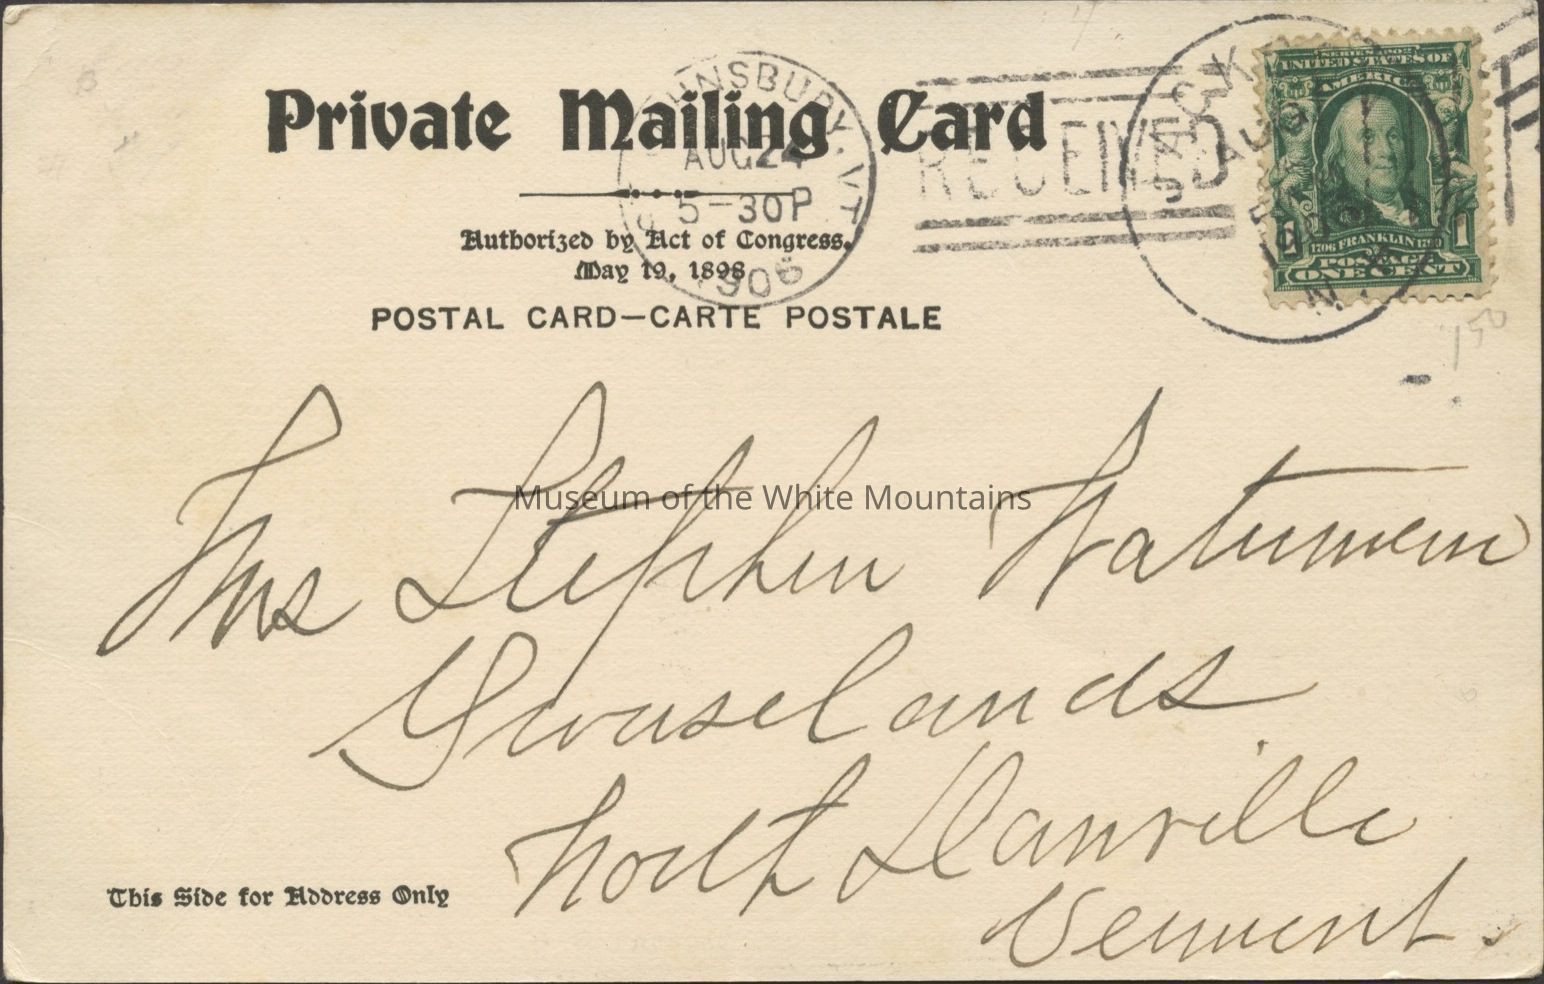 Private Mailing Card
Authorized by Act of Congress.
May 19, 1898
POSTAL CARD—CARTE POSTALE
JOHNSBURY. VT
AUG 24
5-30P
1906
RECEIVED
JACK
AUG
SERIES 1902
UNITED STATES OF
AMERICA
1706 FRANKLIN 1790
POSTAGE
ONE CENT
1 50
Museum of the White Mountains
Mrs Stephen
North Danville
Vermont.
This Side for Address Only